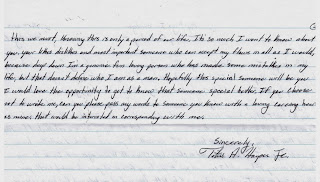 this we must, knowing this is only a period of our life. It's so much I want to know about
you. Your likes dislikes and most important someone who can accept my flaws in all as I would,
because deep down I'm a genuine fun loving person who has made some mistakes in my
life, but that doesn't define who I am as a man. Hopefully this special someone will be you
I would love the opportunity to get to know that someone special better. If you choose
not to write me, can you please pass my words to someone you know with a loving caring heart
as mines that would be interested in corresponding with me.
Sincerely,
Titus A. Harper Jr.